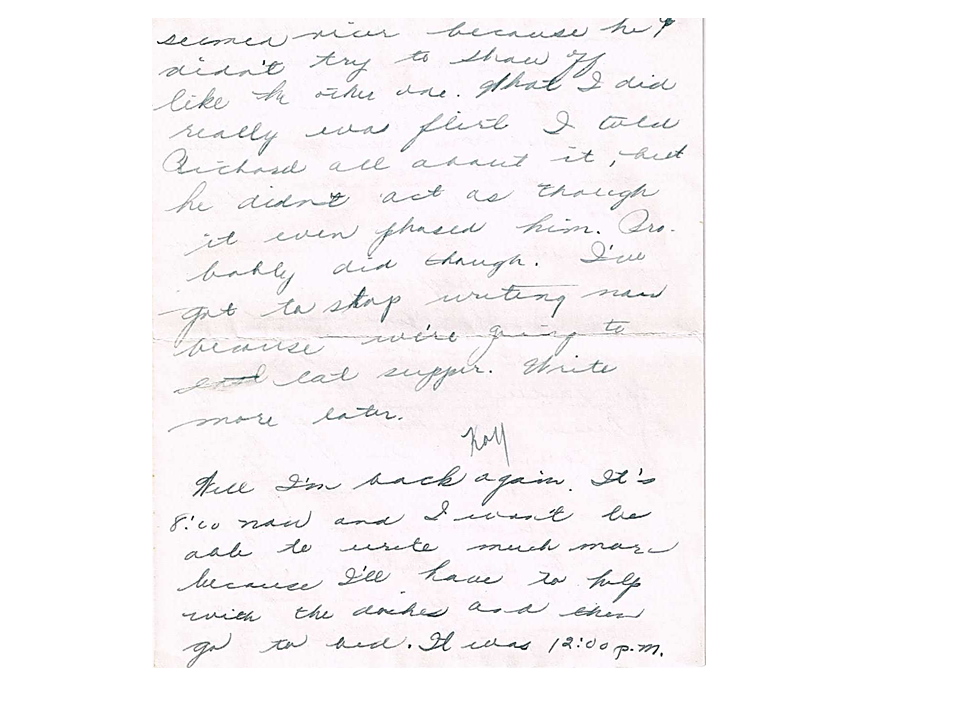 seemed nicer because he
didn't try to show off
like the other one. What I did
really was flirt I told
Richard all about it, but
he didn't act as though
it even phased him. Pro-
bably did though. I've
got to stop writing now
because we're going to
eat supper. Write
more later.
Kay
Well I'm back again. It's
8:00 now and I won't be
able to write much more
because I'll have to help
with the dishes and then
go to bed. It was 12:00 p.m.